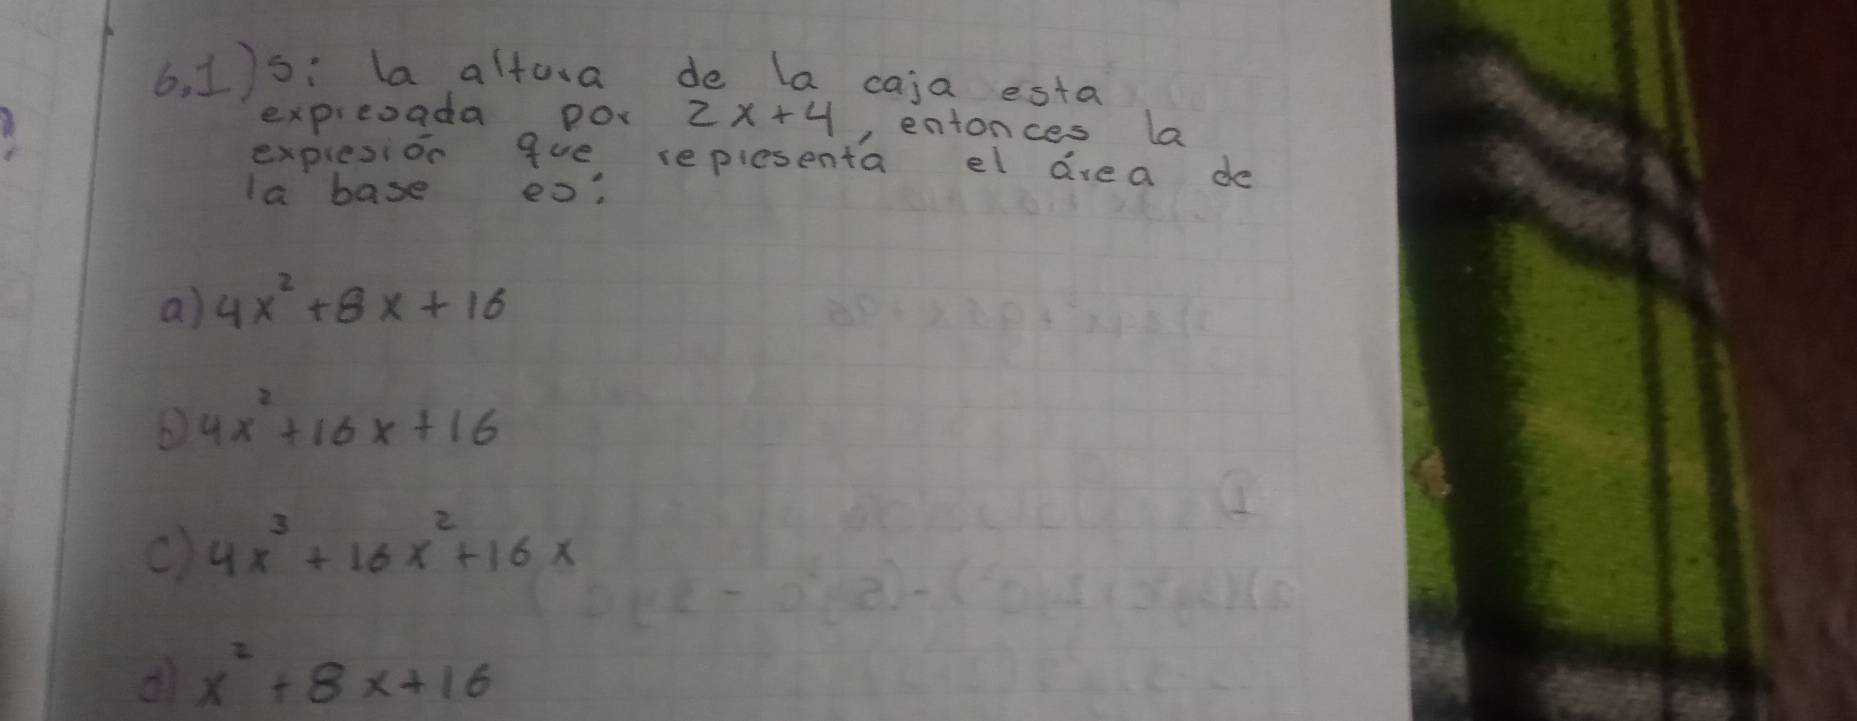 6.1) Si la altura de la caja esta
expresada por 2x+4, entonces la
expresión que representa el área de
la base es:
a) 4x² + 8x + 16
b) 4x² + 16x + 16
c) 4x³ + 16x² + 16x
d) x² + 8x + 16